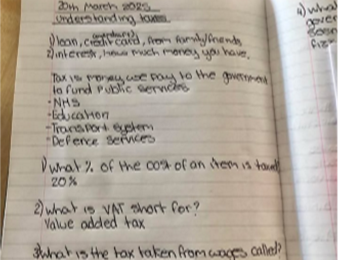 20th March 2025
Understanding taxes
1) loan, credit card, from family/friends
2) interest, how much money you have.
Tax is money we pay to the government
to fund public services
-NHS
-Education
-Transport system
-Defence services
1) What % of the cost of an item is taxed
20%
2) What is VAT short for?
Value added tax
3) What is the tax taken from wages called?
4) What
gover